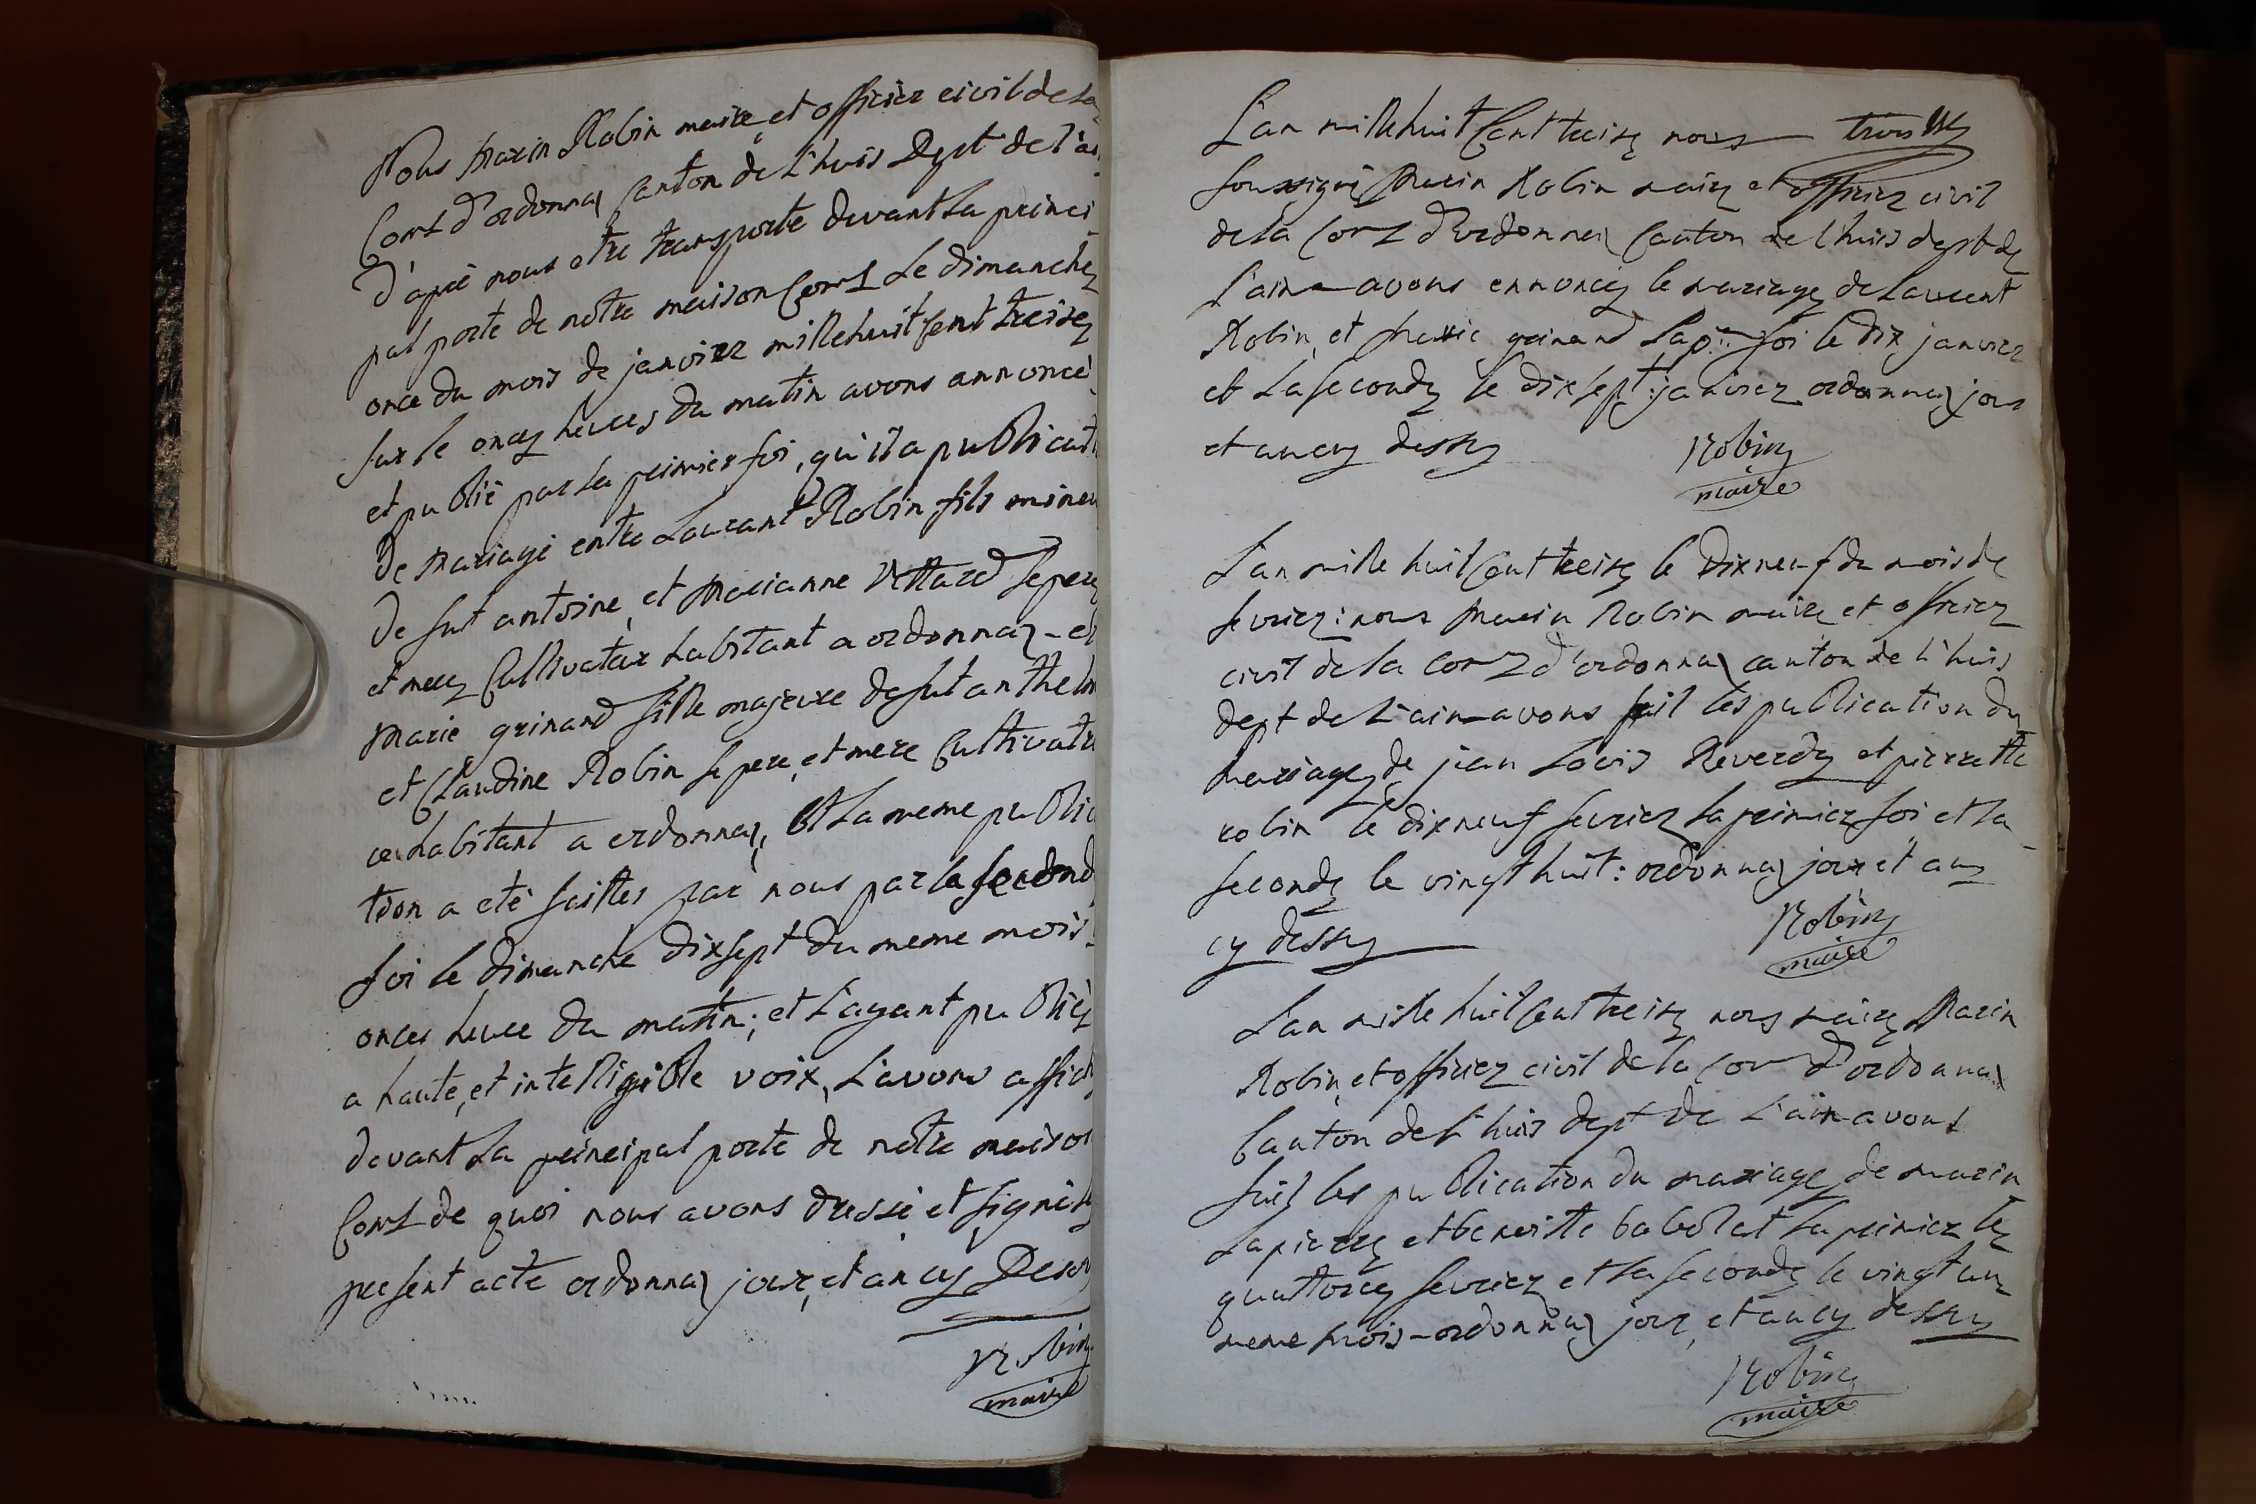 Nous Marin Robin maire, et officier civil de la
Comt d'ordonnaz Canton de L'huis Dept de l'ai
D'aprè nous etre transporté devant La princi
pal porte de notre maison Comt Le dimanche
once du mois de janvier mille huit sent treize
sur le onze heures du matin avons annoncé
et publiè par La primier foi, qu'il a publicat
De mariage entre Laurant Robin fils mineu
De fut antoine, et marianne Vettard Le pere
et mere Cultivatar habitant a ordonnaz - et
marie grinand fille majeure de fut anthelm
et Claudine Robin le pere, et mere Cultivatr
ce habitant a ordonnaz, Et La meme public
tion a eté faittes par nous par la second
foi le dimanche dixsept du meme mois
onces heure du matin; et L'ayant publièz
a haute, et intelligible voix, L'avons affich
devant La principal porte de notre maison
Comt de quoi nous avons dressé et signé le
present acte ordonnaz jour, et an cy Desu
Robin
maire
L'an mille huit Cent treize nous
soussigné Marin Robin maire et officier civil
de la Comt D'ordonnaz Canton de L'huis dept de
L'ain avons ennoncez le mariage de Laurent
Robin, et Marie grinand La p.re foi le dix janvier
et La seconde le dix sept: janvier ordonnaz jour
et an cy dessu
Robin
maire
L'an mille huit Cent treize le Dix neuf du mois de
fevrier: nous Marin Robin maire et officier
civil de la Comt d'ordonnaz canton de L'huis
dept de L'ain avons fait les publication du
mariage de jean Louis Reverdy et pierrette
robin le dix neuf fevrier la primier foi et la
seconde le vingt huit: ordonnaz jour et an
cy dessu
Robin
maire
L'an mille huit Cent treize nous maire Marin
Robin, et officier civil de la Com D'ordonnaz
Canton de L'huis dept de L'ain avons
fait les publication du mariage de marin
Lapierre et benoitte babolat La primier le
quattorze fevrier et la seconde le vingt un
meme mois - ordonnaz jour, et an cy dessu
Robin
maire